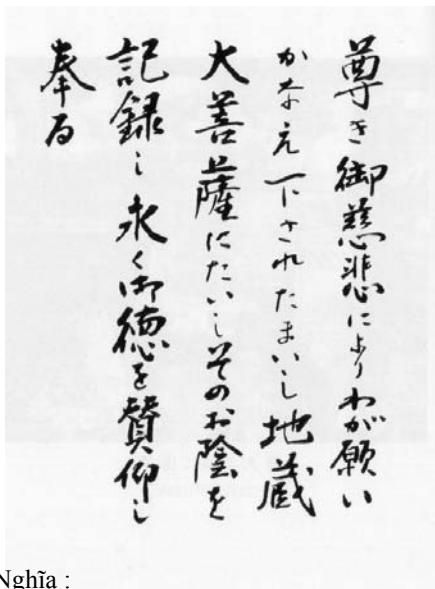 尊き御慈悲によりわが願い
かなえ下されたまいし地蔵
大菩薩にたいしそのお陰を
記録し永く御徳を賛仰し
奉る
Nghĩa :